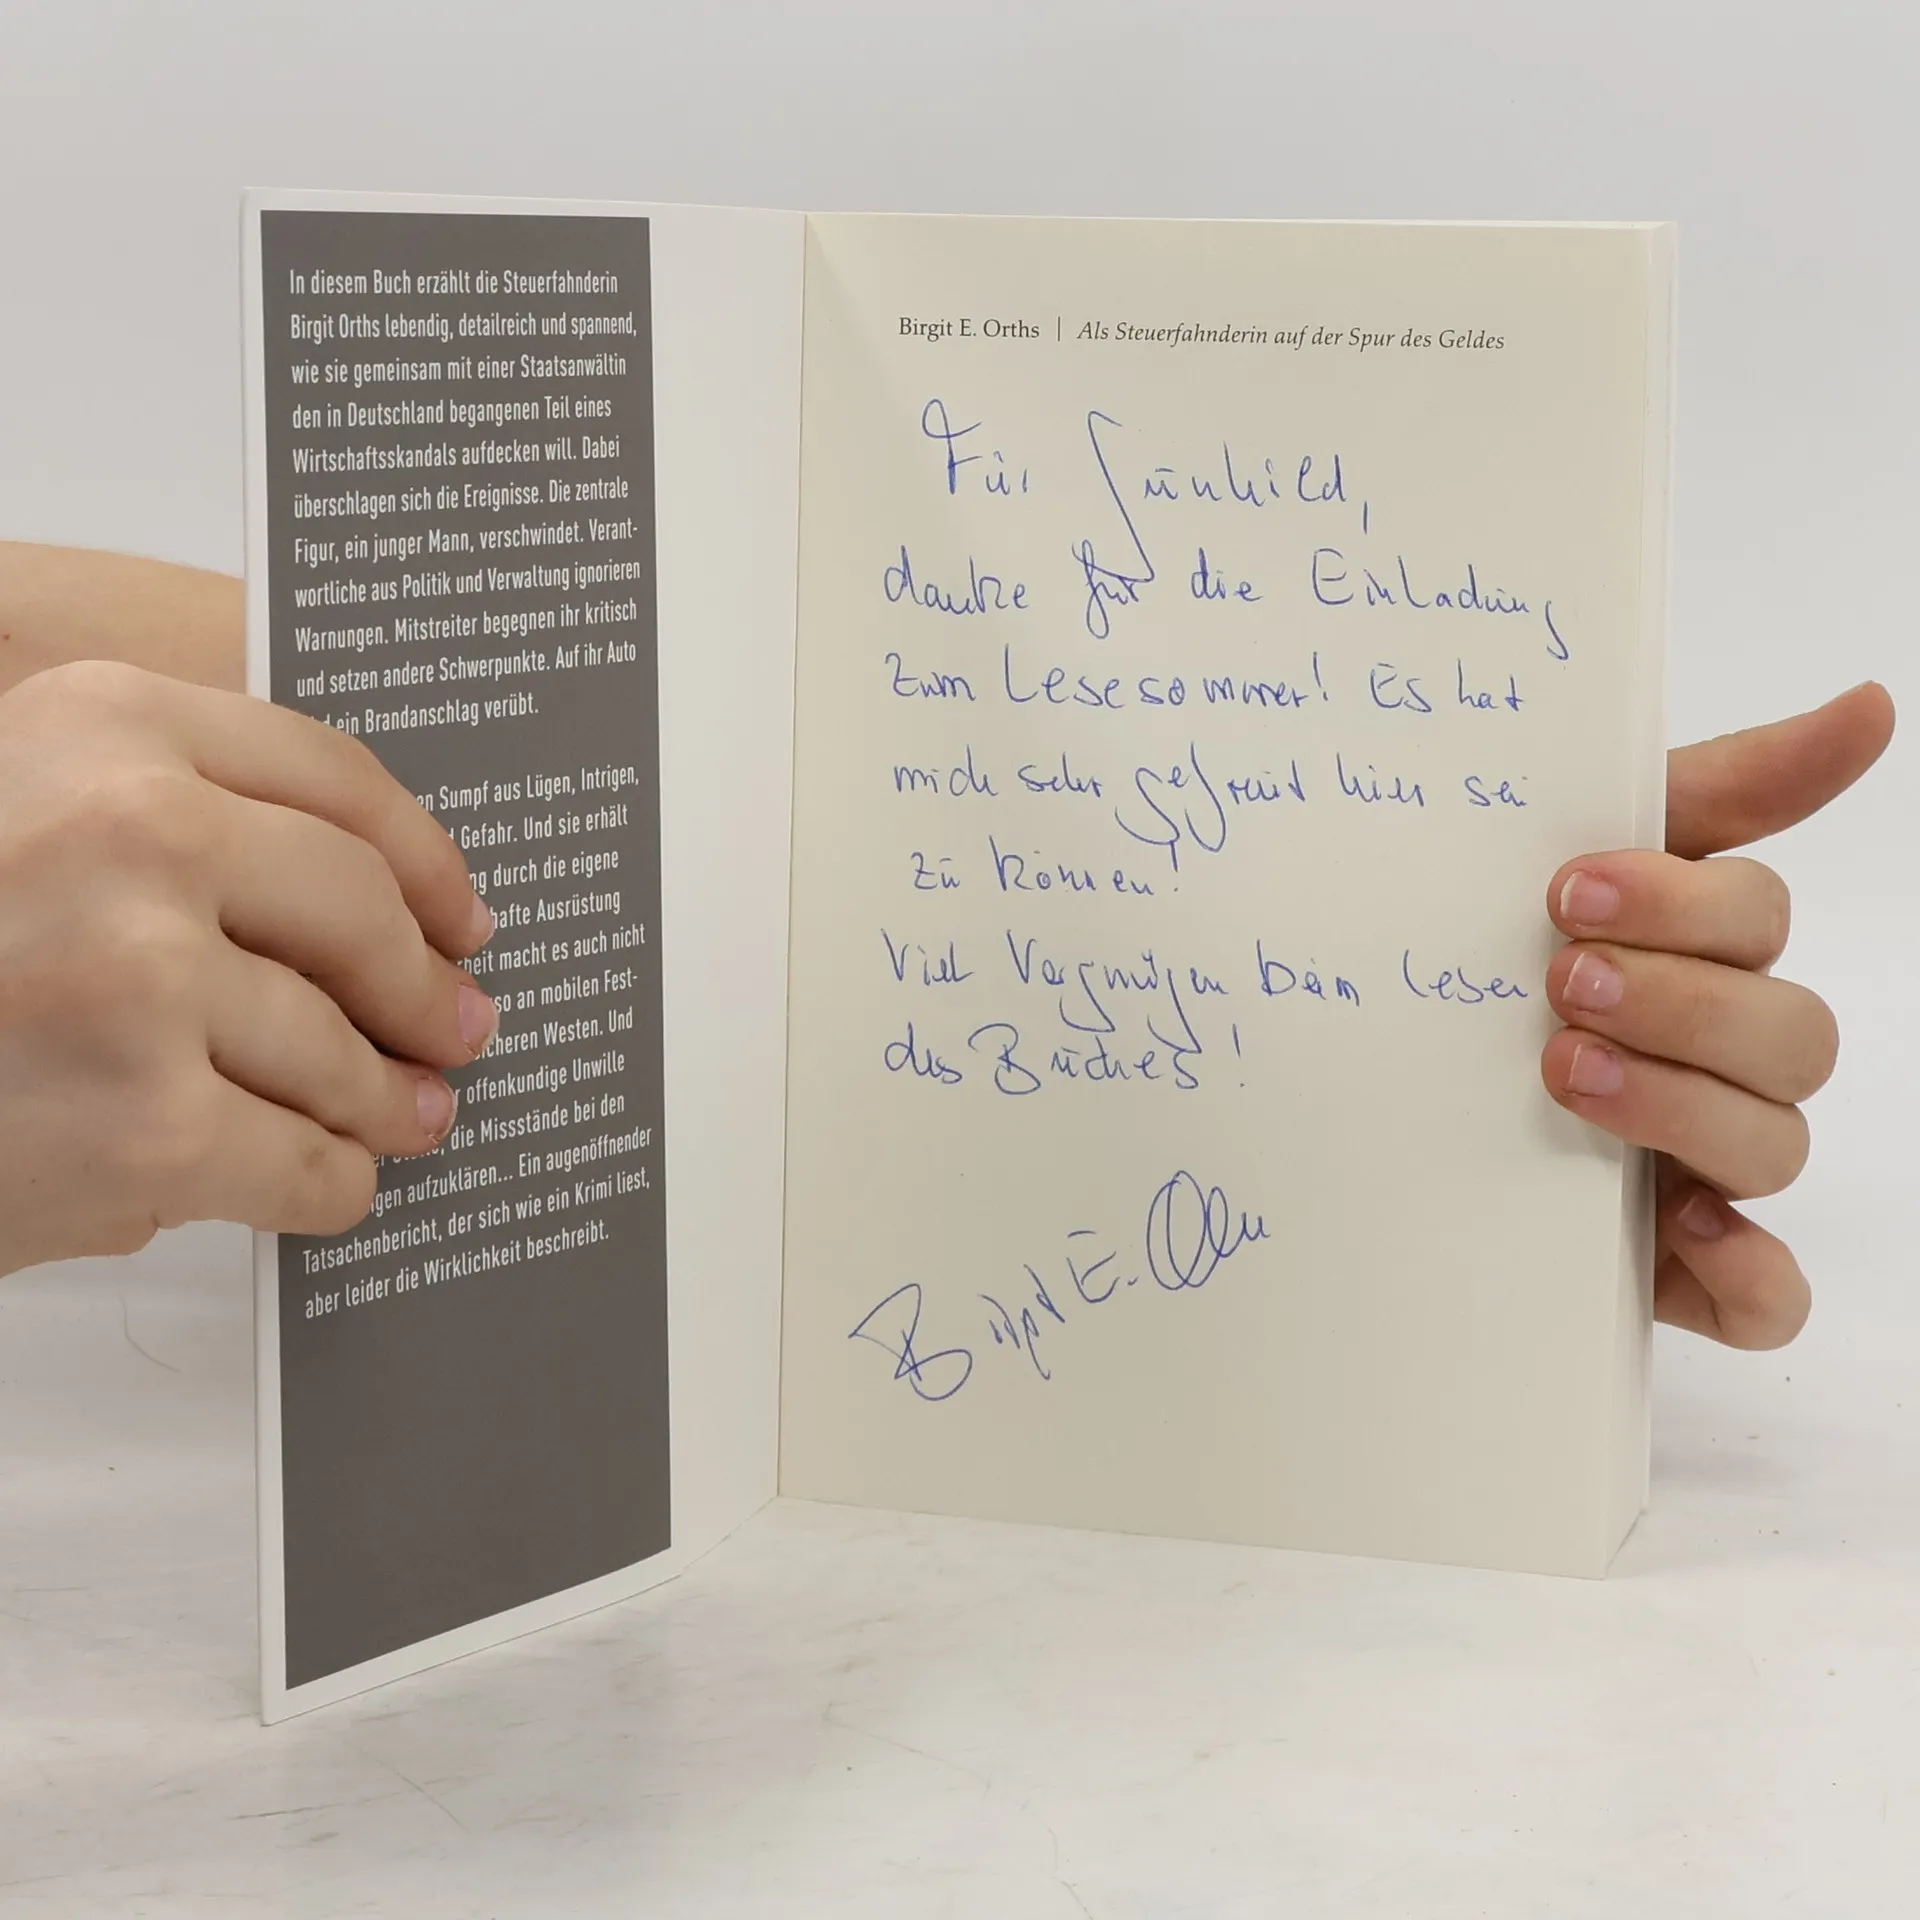 In diesem Buch erzählt die Steuerfahnderin
Birgit Orths lebendig, detailreich und spannend,
wie sie gemeinsam mit einer Staatsanwältin
den in Deutschland begangenen Teil eines
Wirtschaftsskandals aufdecken will. Dabei
überschlagen sich die Ereignisse. Die zentrale
Figur, ein junger Mann, verschwindet. Verant-
wortliche aus Politik und Verwaltung ignorieren
Warnungen. Mitstreiter begegnen ihr kritisch
und setzen andere Schwerpunkte. Auf ihr Auto
ein Brandanschlag verübt.
Sumpf aus Lügen, Intrigen,
Gefahr. Und sie erhält
durch die eigene
Ausrüstung
macht es auch nicht
an mobilen Fest-
Westen. Und
offenkundige Unwille
die Missstände bei den
aufzuklären... Ein augenöffnender
Tatsachenbericht, der sich wie ein Krimi liest,
aber leider die Wirklichkeit beschreibt.
Birgit E. Orths | Als Steuerfahnderin auf der Spur des Geldes
Für Gunhild,
danke für die Einladung
zum Lesesommer! Es hat
mich sehr gefreut hier sein
zu können!
Viel Vergnügen beim Lesen
des Buches!
Birgit E. Orths